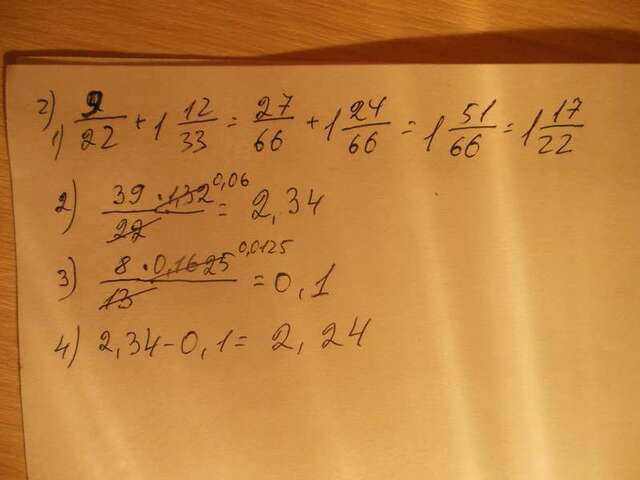 2)
1) 9/22 + 1 12/33 = 27/66 + 1 24/66 = 1 51/66 = 1 17/22
2) 39 · 1,32 0,06 / 22 = 2,34
3) 8 · 0,1625 0,0125 / 13 = 0,1
4) 2,34 - 0,1 = 2,24